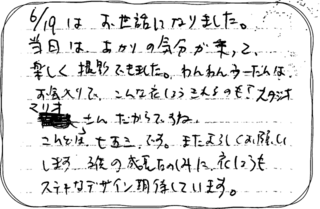 6/19は お世話になりました。
当日は、あかりの気分が乗って、
楽しく撮影できました。わんわんうーたんは、
お気入りで、こんな衣しょうきれるのも「スタジオ
マリオ さん だからですね。
こんどは、七五三です。またよろしくお願いし
します 3歳の のたのしみに、衣しょうも
ステキなデザイン期待しています。